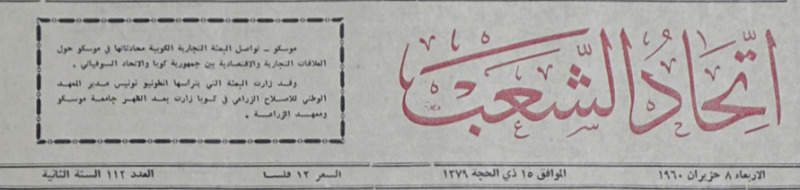 اتحاد الشعب
موسكو - تواصل البعثة التجارية الكوبية محادثاتها في موسكو حول
العلاقات التجارية والاقتصادية بين جمهورية كوبا والاتحاد السوفياتي .
وقد زارت البعثة التي يترأسها انطونيو نونيس مدير المعهد
الوطني للاصلاح الزراعي في كوبا زارت بعد الظهر جامعة موسكو
ومعهد الزراعة .
الاربعاء ٨ حزيران ١٩٦٠ الموافق ١٥ ذي الحجة ١٣٧٩ السعر ١٢ فلسا العدد ١١٢ السنة الثانية